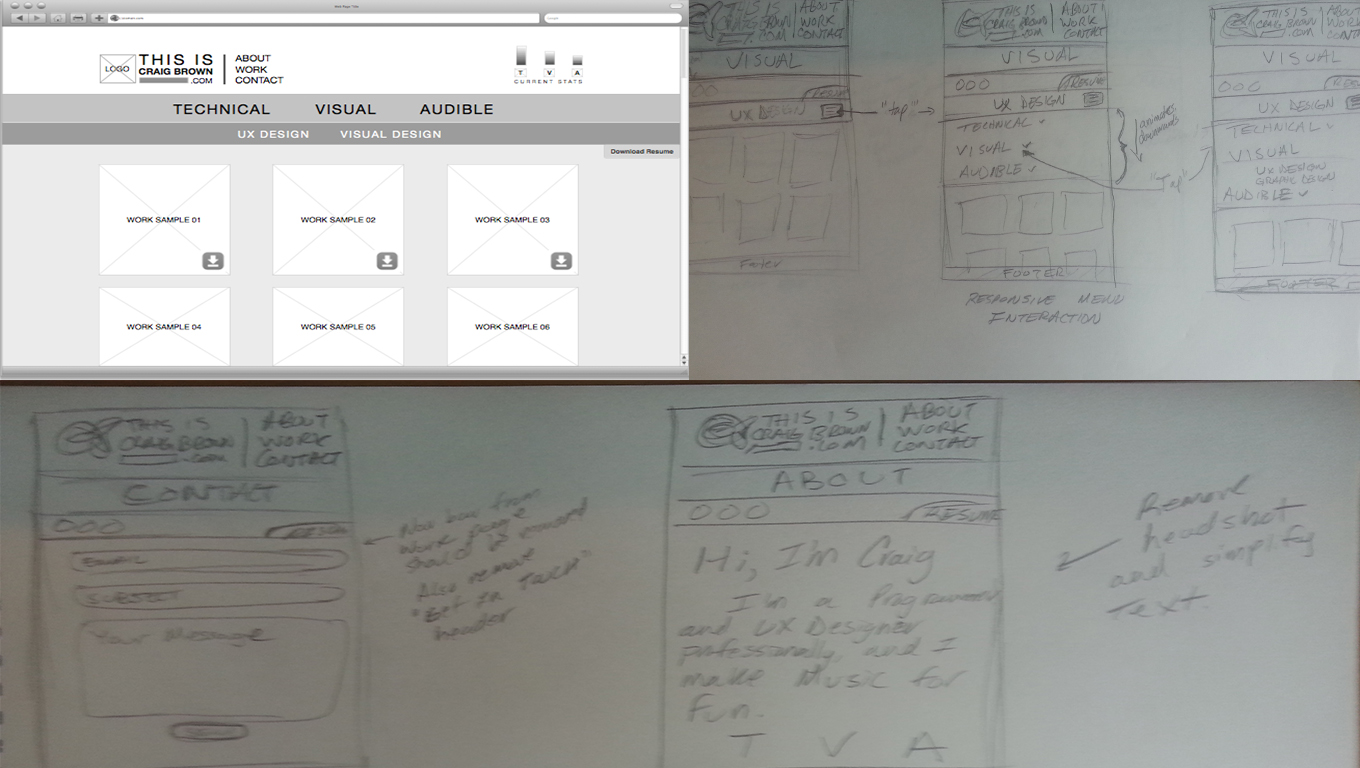 LOGO
THIS IS
CRAIG BROWN
.COM
ABOUT
WORK
CONTACT
T V A
CURRENT STATS
TECHNICAL VISUAL AUDIBLE
UX DESIGN VISUAL DESIGN
Download Resume
WORK SAMPLE 01
WORK SAMPLE 02
WORK SAMPLE 03
WORK SAMPLE 04
WORK SAMPLE 05
WORK SAMPLE 06
THIS IS
CRAIG BROWN
.COM
ABOUT
WORK
CONTACT
VISUAL
RESUME
UX DESIGN
"tap"
THIS IS
CRAIG BROWN
.COM
ABOUT
WORK
CONTACT
VISUAL
RESUME
UX DESIGN
TECHNICAL
VISUAL
AUDIBLE
animates
downwards
"Tap"
FOOTER
RESPONSIVE MENU
INTERACTION
THIS IS
CRAIG BROWN
.COM
ABOUT
WORK
CONTACT
VISUAL
RESUME
UX DESIGN
TECHNICAL
VISUAL
UX DESIGN
GRAPHIC DESIGN
AUDIBLE
FOOTER
THIS IS
CRAIG BROWN
.COM
ABOUT
WORK
CONTACT
CONTACT
EMAIL
SUBJECT
Your Message
Nav bar from
work page
should be removed
Also remove
"Get In Touch"
header
THIS IS
CRAIG BROWN
.COM
ABOUT
WORK
CONTACT
ABOUT
RESUME
Hi, I'm Craig
I'm a Programmer
and UX Designer
professionally, and I
make Music for
fun.
T V A
Remove
headshot
and simplify
Text.